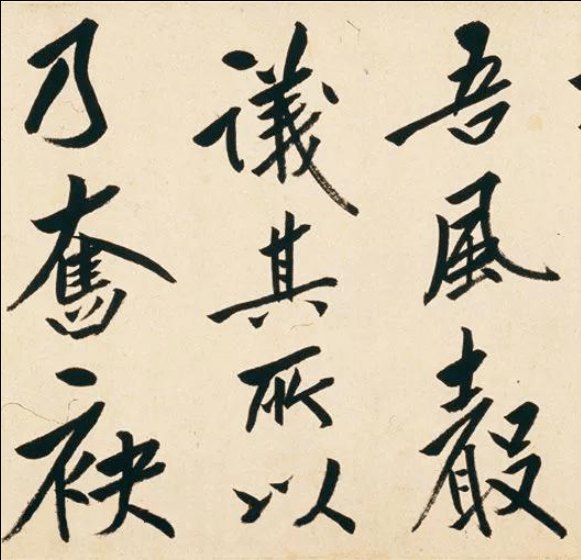 吾風聲
議其所以
乃奮袂